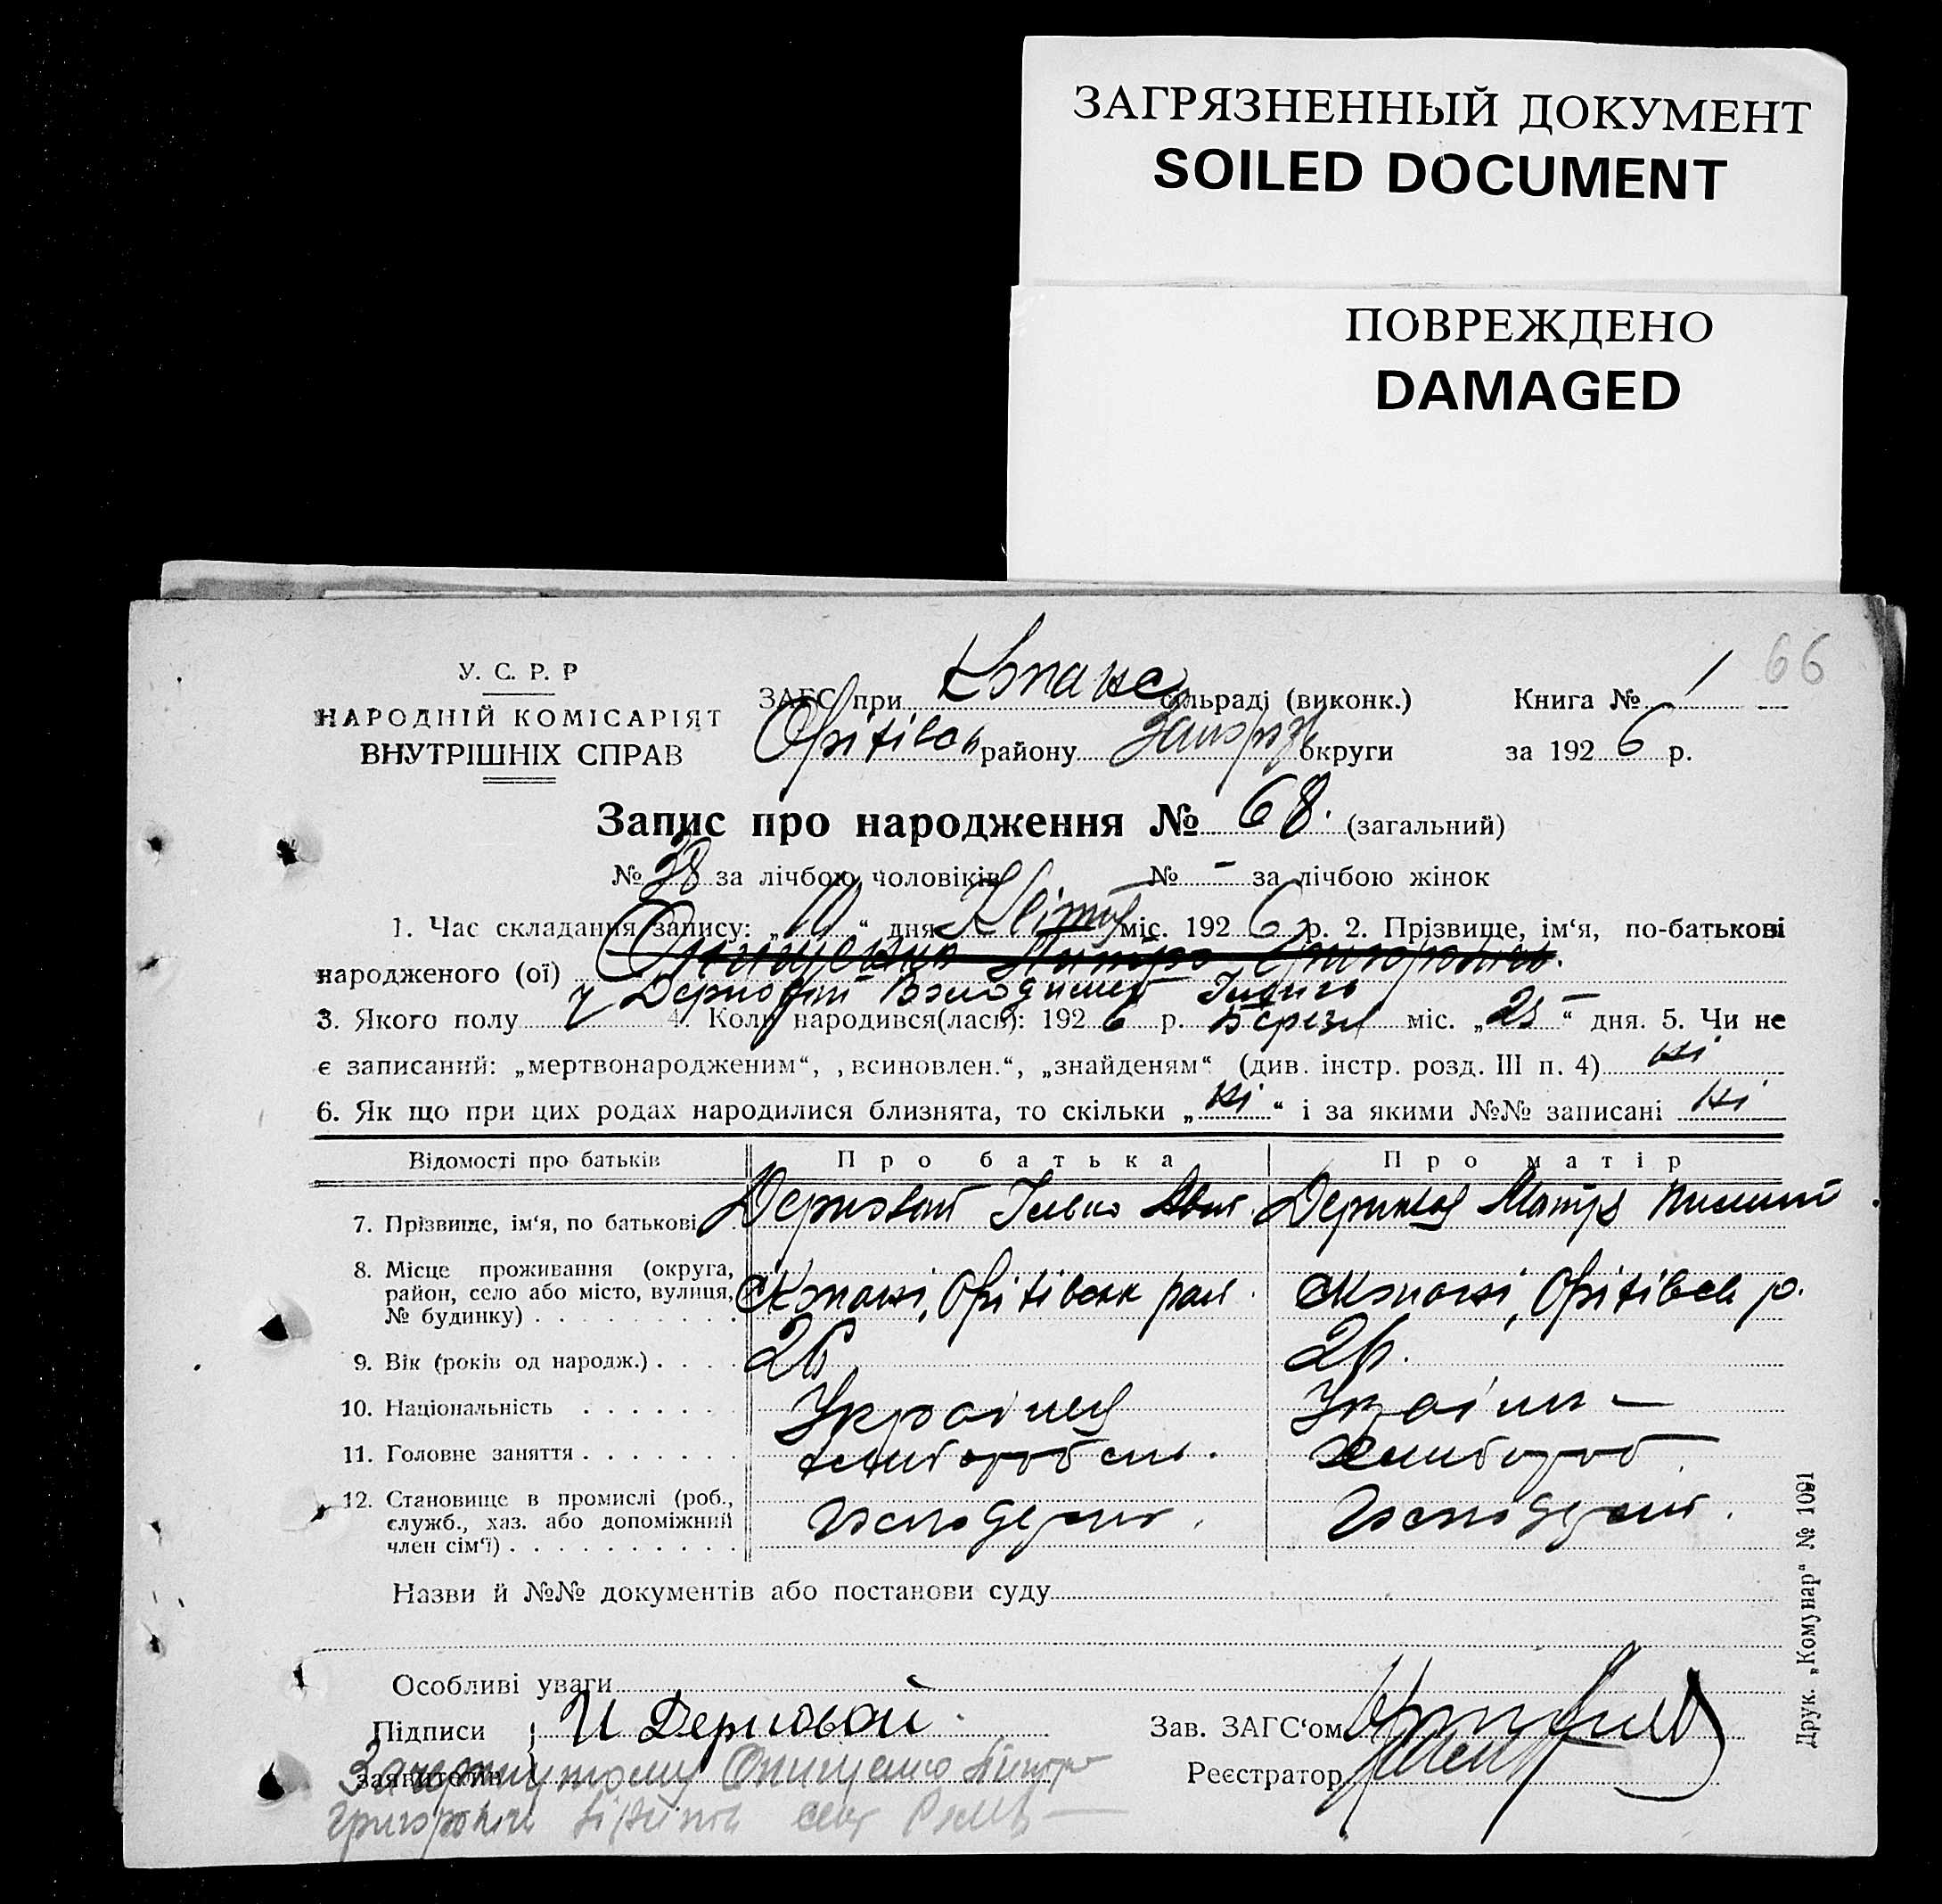 ЗАГРЯЗНЕННЫЙ ДОКУМЕНТ
SOILED DOCUMENT
ПОВРЕЖДЕНО
DAMAGED
66
У. С. Р. Р
НАРОДНІЙ КОМІСАРІЯТ
ВНУТРІШНІХ СПРАВ
ЗАГС при Копанс сільраді (виконк.) Книга № 1
Оритівськ району Запоріз округи за 1926 р.
Запис про народження № 68. (загальний)
№ 38 за лічбою чоловіків № - за лічбою жінок
1. Час складання запису: „10“ дня Квітня міс. 1926 р. 2. Прізвище, ім‘я, по-батькові
народженого (ої) Онищенко Дмитро Григорович.
Держовий Володимер Ільвич
3. Якого полу Ч 4. Коли народився(лась): 1926 р. Березн міс. „25“ дня. 5. Чи не
є записаний: „мертвонародженим“, „всиновлен.“, „знайденям“ (див. інстр. розд. III п. 4) ні
6. Як що при цих родах народилися близнята, то скільки „ні“ і за якими №№ записані ні
Відомості про батьків Про батька Про матір
7. Прізвище, ім‘я, по батькові
8. Місце проживання (округа, район, село або місто, вулиця, № будинку) Копані, Орітівськ рай. Копані, Орітівськ р.
9. Вік (років од народж.) 26. 26.
10. Національність Українец Україн —
11. Головне заняття хлиборобств. Хлибороб
12. Становище в промислі (роб., служб., хаз. або допоміжний член сім‘ї) Господарст. Господарст.
Назви й №№ документів або постанови суду
Особливі уваги
Підписи
заявителів
Зав. ЗАГС‘ом
Реєстратор
Зачеркнутому Онищенко Дмитро
Григорович
Друк. „Комунар“ № 1091